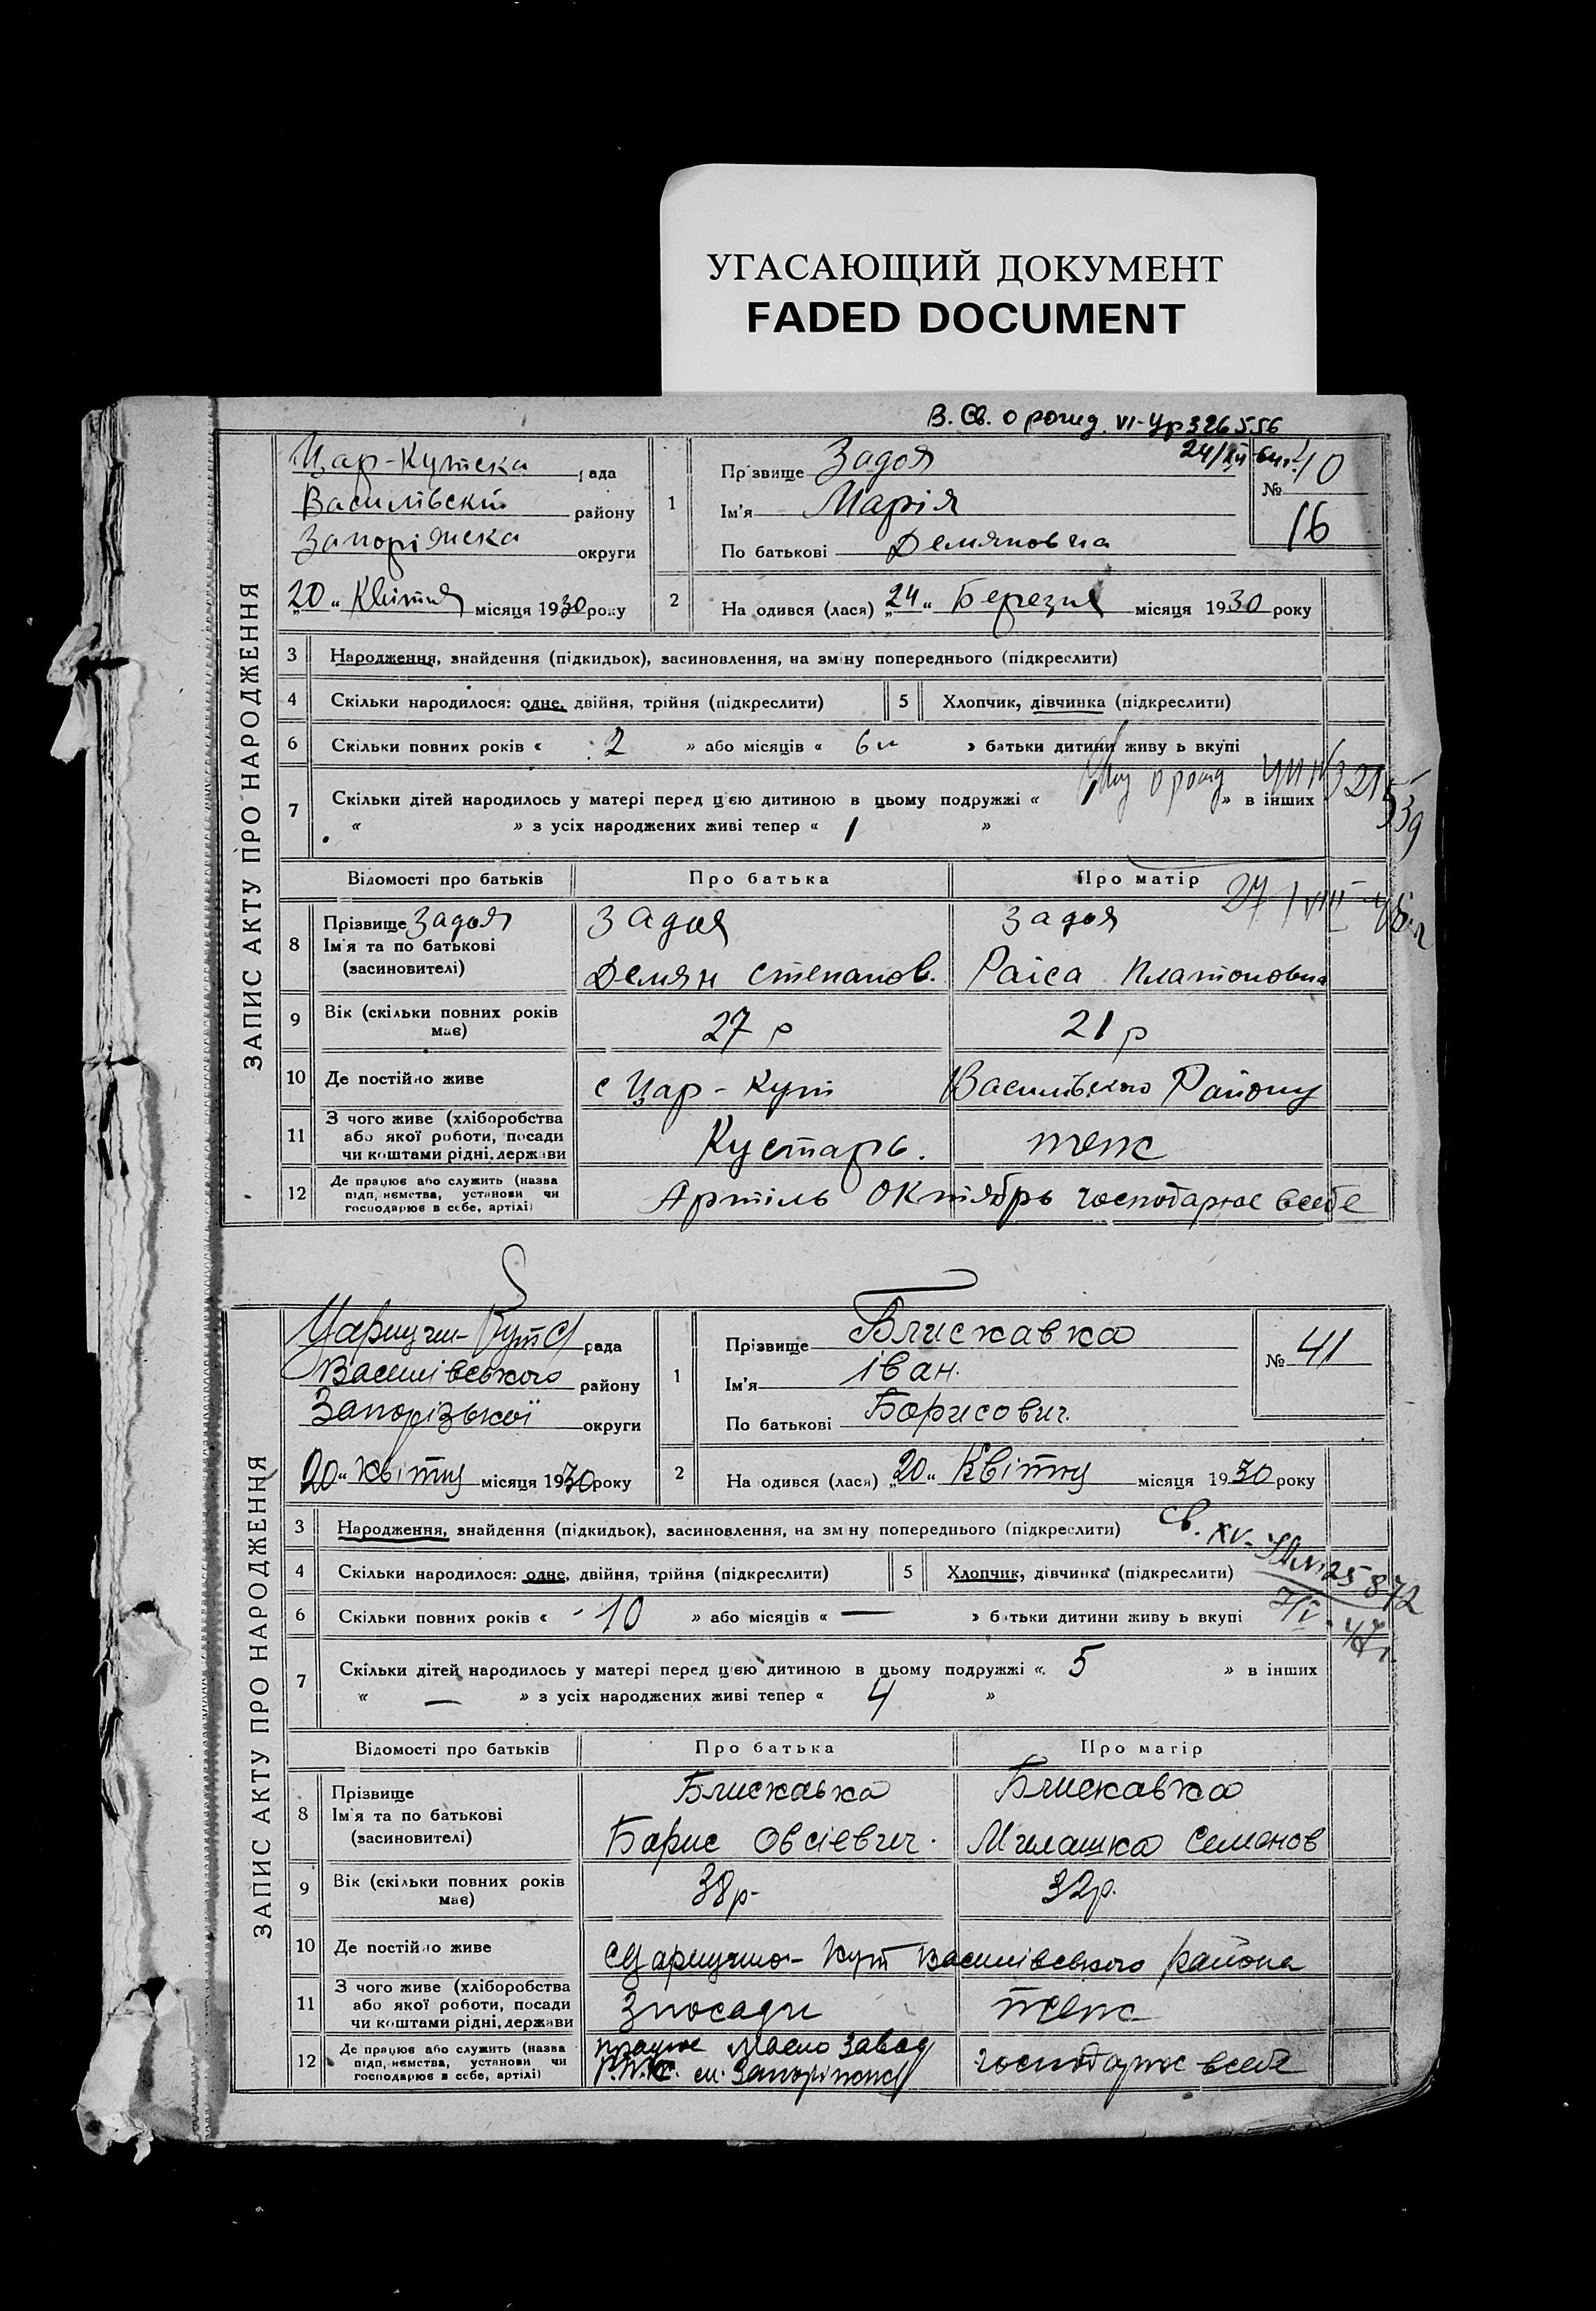 УГАСАЮЩИЙ ДОКУМЕНТ
FADED DOCUMENT
В. Св. о рожд. VI-Ур 326556
24/XII
ЗАПИС АКТУ ПРО НАРОДЖЕННЯ
Цар-Кутська рада
Василівский району
Запоріжска округи
20 " Квітня місяця 1930 року
1 Прізвище Задоя
Ім'я Марія
По батькові Демяновна
№ 40
16
2 На одився (лася) „24 " Березня місяця 1930 року
3 Народження, знайдення (підкидьок), засиновлення, на зміну попереднього (підкреслити)
4 Скільки народилося: одне, двійня, трійня (підкреслити) 5 Хлопчик, дівчинка (підкреслити)
6 Скільки повних років « 2 » або місяців « 6 м » батьки дитини живу ь вкупі
7 Скільки дітей народилось у матері перед цією дитиною в цьому подружжі « » в інших
« » з усіх народжених живі тепер « 1 »
Відомості про батьків Про батька Про матір
8 Прізвище Задоя Задоя Задоя
Ім'я та по батькові
(засиновителі) Демян Степанов. Раіса Платоновна
9 Вік (скільки повних років має) 27 р 21 р
10 Де постійно живе с Цар-Кут Василівського Району
11 З чого живе (хліборобства
або якої роботи, посади
чи коштами рідні, держави Кустарь. теж
12 Де працює або служить (назва
підп, иємства, установи чи
господарює в себе, артілі) Артіль Октябрь господарює всебе
ЗАПИС АКТУ ПРО НАРОДЖЕННЯ
Царицин-Кутс рада
Василівського району
Запорізької округи
20 " Квітну місяця 1930 року
1 Прізвище Блискавка
Ім'я Іван.
По батькові Борисович.
№ 41
2 На одився (лася) „20 " Квітну місяця 1930 року
3 Народження, знайдення (підкидьок), засиновлення, на зміну попереднього (підкреслити)
Св. XV-
4 Скільки народилося: одне, двійня, трійня (підкреслити) 5 Хлопчик, дівчинка (підкреслити)
6 Скільки повних років « 10 » або місяців « — » батьки дитини живу ь вкупі
7 Скільки дітей народилось у матері перед цією дитиною в цьому подружжі « 5 » в інших
« — » з усіх народжених живі тепер « 4 »
Відомості про батьків Про батька Про матір
8 Прізвище Блискавка Блискавка
Ім'я та по батькові
(засиновителі) Борис Овсієвич. Милашка Семенов
9 Вік (скільки повних років має) 38р- 32р.
10 Де постійно живе с Царицино-Кут Василівського района
11 З чого живе (хліборобства
або якої роботи, посади
чи коштами рідні, держави З посади теж
12 Де працює або служить (назва
підп, иємства, установи чи
господарює в себе, артілі) працює Масло Завод господарює всебе